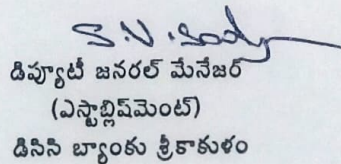 డిప్యూటీ జనరల్ మేనేజర్
(ఎస్టాబ్లిష్‌మెంట్)
డిసిసి బ్యాంకు శ్రీకాకుళం